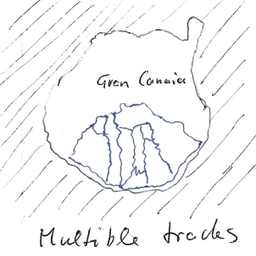 Gran Canaia
Multible tracks